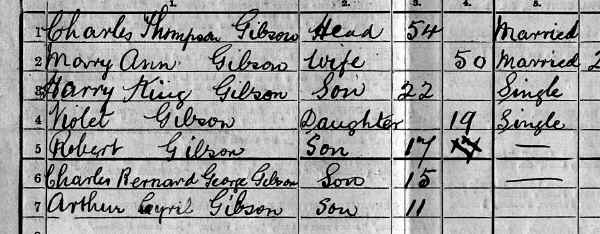 1. 2. 3. 4. 5.
1 Charles Thompson Gibson Head 54 Married
2 Marry Ann Gibson Wife 50 Married 2
3 Harry King Gibson Son 22 Single
4 Violet Gibson Daughter 19 Single
5 Robert Gibson Son 17 —
6 Charles Bernard George Gibson Son 15 —
7 Arthur Cyril Gibson Son 11